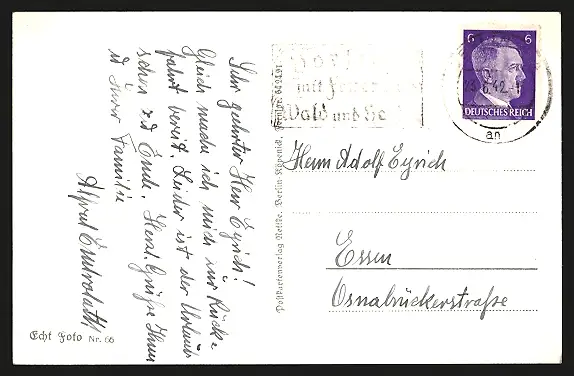 Sehr geehrter Herr Eyrich!
Gleich mache ich mich zur Rück=
fahrt bereit. Leider ist der Urlaub
schon zu Ende. Herzl. Grüße Ihnen
u Ihrer Familie
Alfred
Echt Foto Nr. 66
Postkartenverlag Berlin-Köpenick,
mit Feuer
Wald und He
6 6
DEUTSCHES REICH
42
an
Herrn Adolf Eyrich
Essen
Osnabrückerstraße